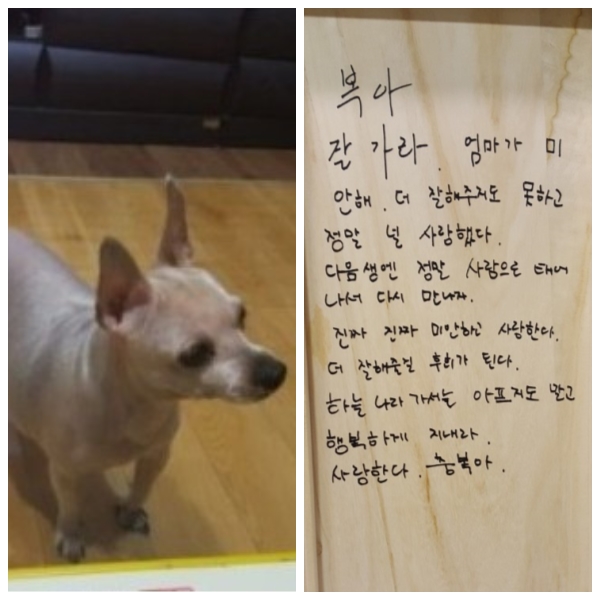 복아
잘 가라. 엄마가 미
안해. 더 잘해주지도 못하고
정말 널 사랑했다.
다음생엔 정말 사람으로 태어
나서 다시 만나자.
진짜 진짜 미안하고 사랑한다.
더 잘해줄걸 후회가 된다.
하늘 나라 가서는 아프지도 말고
행복하게 지내라.
사랑한다. 충복아.